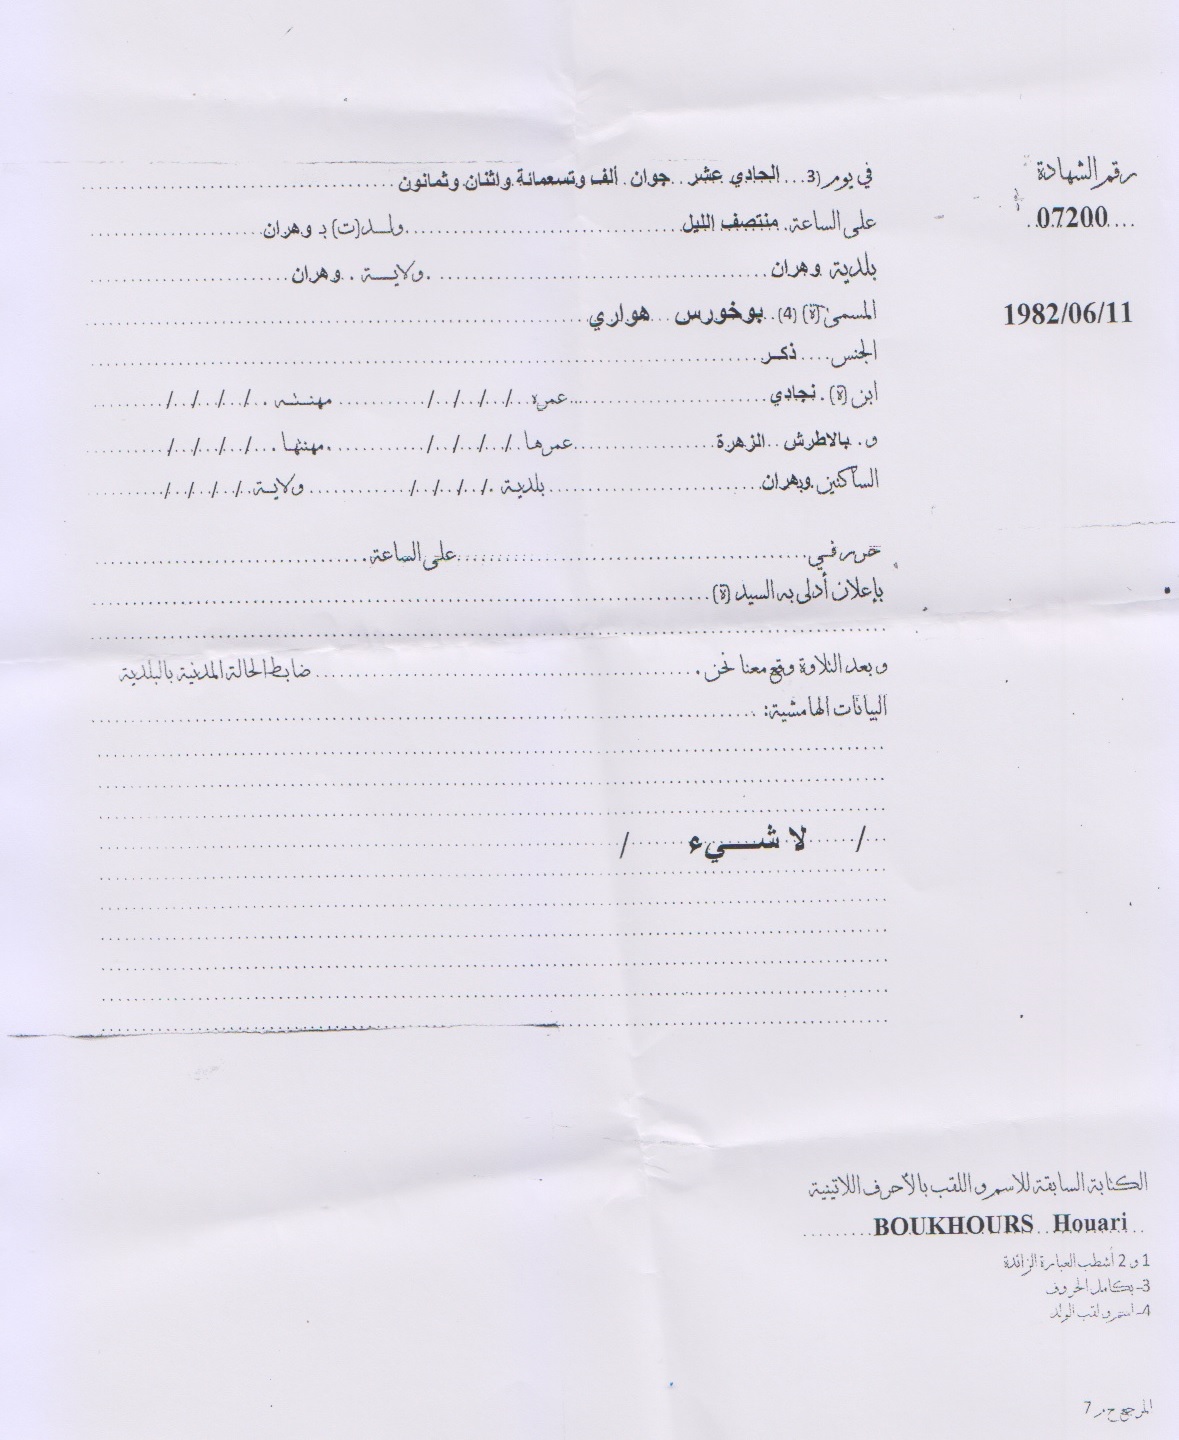 رقم الشهادة
07200
1982/06/11
في يوم (3... الحادي عشر.. جوان. ألف وتسعمائة واثنان وثمانون
على الساعة. منتصف الليل ولـد(ت) بـ وهران
بلدية وهران ولايـة.. وهران
المسمى (ة) (4).. بوخورس هواري
الجنس.... ذكـر
ابن (ة). نجادي عمره /../../../../ مهنتـه. /../../../../
و. بالاطرش.. الزهرة عمرها /../../../../ مهنتها. /../../../../
الساكنين. وبهران بلدية. /../../../../ ولايـة /../../../../
حرر في على الساعة.
بإعلان أدلى به السيد (ة)
و بعد التلاوة وقع معنا نحن. ضابط الحالة المدنية بالبلدية
البيانات الهامشية:
/ لا شــيء /
الكتابة السابقة للاسم و اللقب بالأحرف اللاتينية
BOUKHOURS Houari
1 و 2 أشطب العبارة الزائدة
3- بكامل الحروف
4- اسم و لقب الولد
المرجع ح.م 7